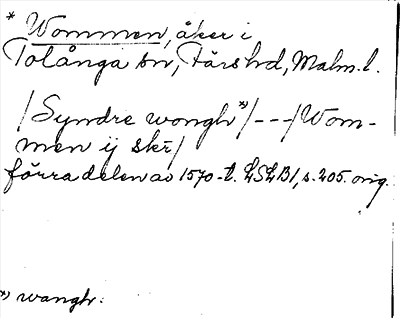 * Wommen, åker i
Tolånga sn, Färs hd, Malm. l.
/Syndre wongh *)/---/Wom-
men ij skr/
förra delen av 1570-t. LSLB1, s. 205. orig.
*) wangh: